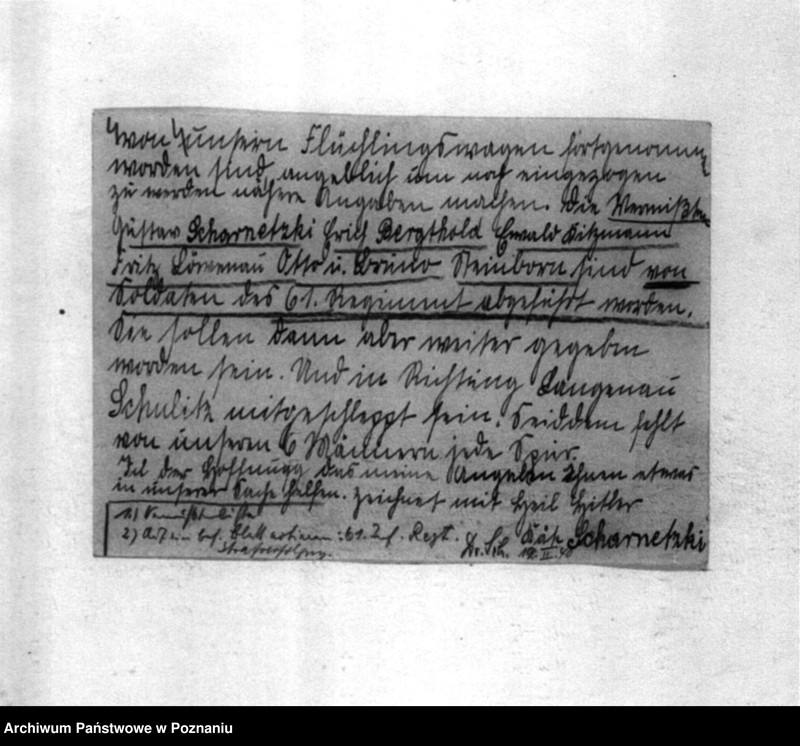 von unsern Flüchlingswagen fortgenommen
worden sind, angeblich um noch eingezogen
zu werden nähere Angaben machen. Die Vermißten
Gustav Scharnetzki Erich Bergthold Ewald Kitzmann
Fritz Löwenau Otto u. Bruno Steinborn sind von
Soldaten des 61. Regimmt abgeführt worden.
Sie sollen dann aber weiter gegeben
worden sein. Und in Richtung Langenau
Schulitz mitgeschleppt sein. Seiddem fehlt
von unseren 6 Männern jede Spur.
In der Hoffnung das meine Angaben Ihnen etwas
in unserer Sache helfen. zeichnet mit Heil Hitler
1) Vermißtenliste
2) bes. Blatt notieren: 61. Inf. Regt. Käte Scharnetzki
Strafverfolgung. Dr. Sch. 19. II. 40
Archiwum Państwowe w Poznaniu